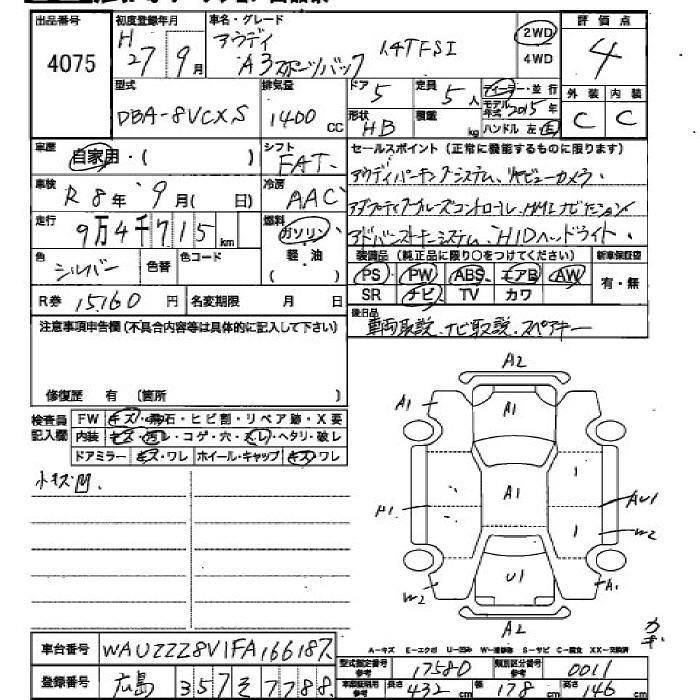 出品番号 初度登録年月 車名・グレード 評価点
4075 H 27 9月 アウディ A3スポーツバック 1.4TFSI 2WD 4WD 4
型式 排気量 ドア 5 定員 5人 ディーラー・並行 外装 内装
DBA-8VCXS 1400 CC 形状 HB 積載 kg モデル年式 2015年 ハンドル 左・右 C C
車歴 自家用・( ) シフト FAT セールスポイント (正常に機能するものに限ります)
車検 R 8年 9月( 日) 冷房 AAC アウディパーキングシステム、リヤビューカメラ、
走行 9万4千715km 燃料 ガソリン アダプティブクルーズコントロール、MMIナビゲーション
軽・油 ( ) HIDヘッドライト
色 シルバー 色替 色コード 装備品 (純正品に限り○をつけてください) 新車保証書
PS PW ABS エアB AW 有・無
R券 15160円 名変期限 月 日 SR ナビ TV カワ
注意事項申告欄(不具合内容等は具体的に記入して下さい) 後日品
車両取説、ナビ取説、スペアキー
修復歴 有 (箇所 )
検査員記入欄 FW キズ・飛石・ヒビ割・リペア跡・X要
内装 キズ・汚レ・コゲ・穴・スレ・ヘタリ・破レ
ドアミラー キズ・ワレ ホイール・キャップ キズ・ワレ
小キズ凹
A2
A1 A1
A1 AU1
W2
U1
W2 A1
A2
車台番号 WAUZZZ8V1FA166187 A-キズ E-エクボ U-凹み W-補修跡 S-サビ C-腐食 XX-交換済
型式指定番号 参考 17580 類別区分番号 参考 0011
登録番号 広島 357 そ 7788 車検証記載 参考 長さ 432cm 幅 178cm 高さ 146cm